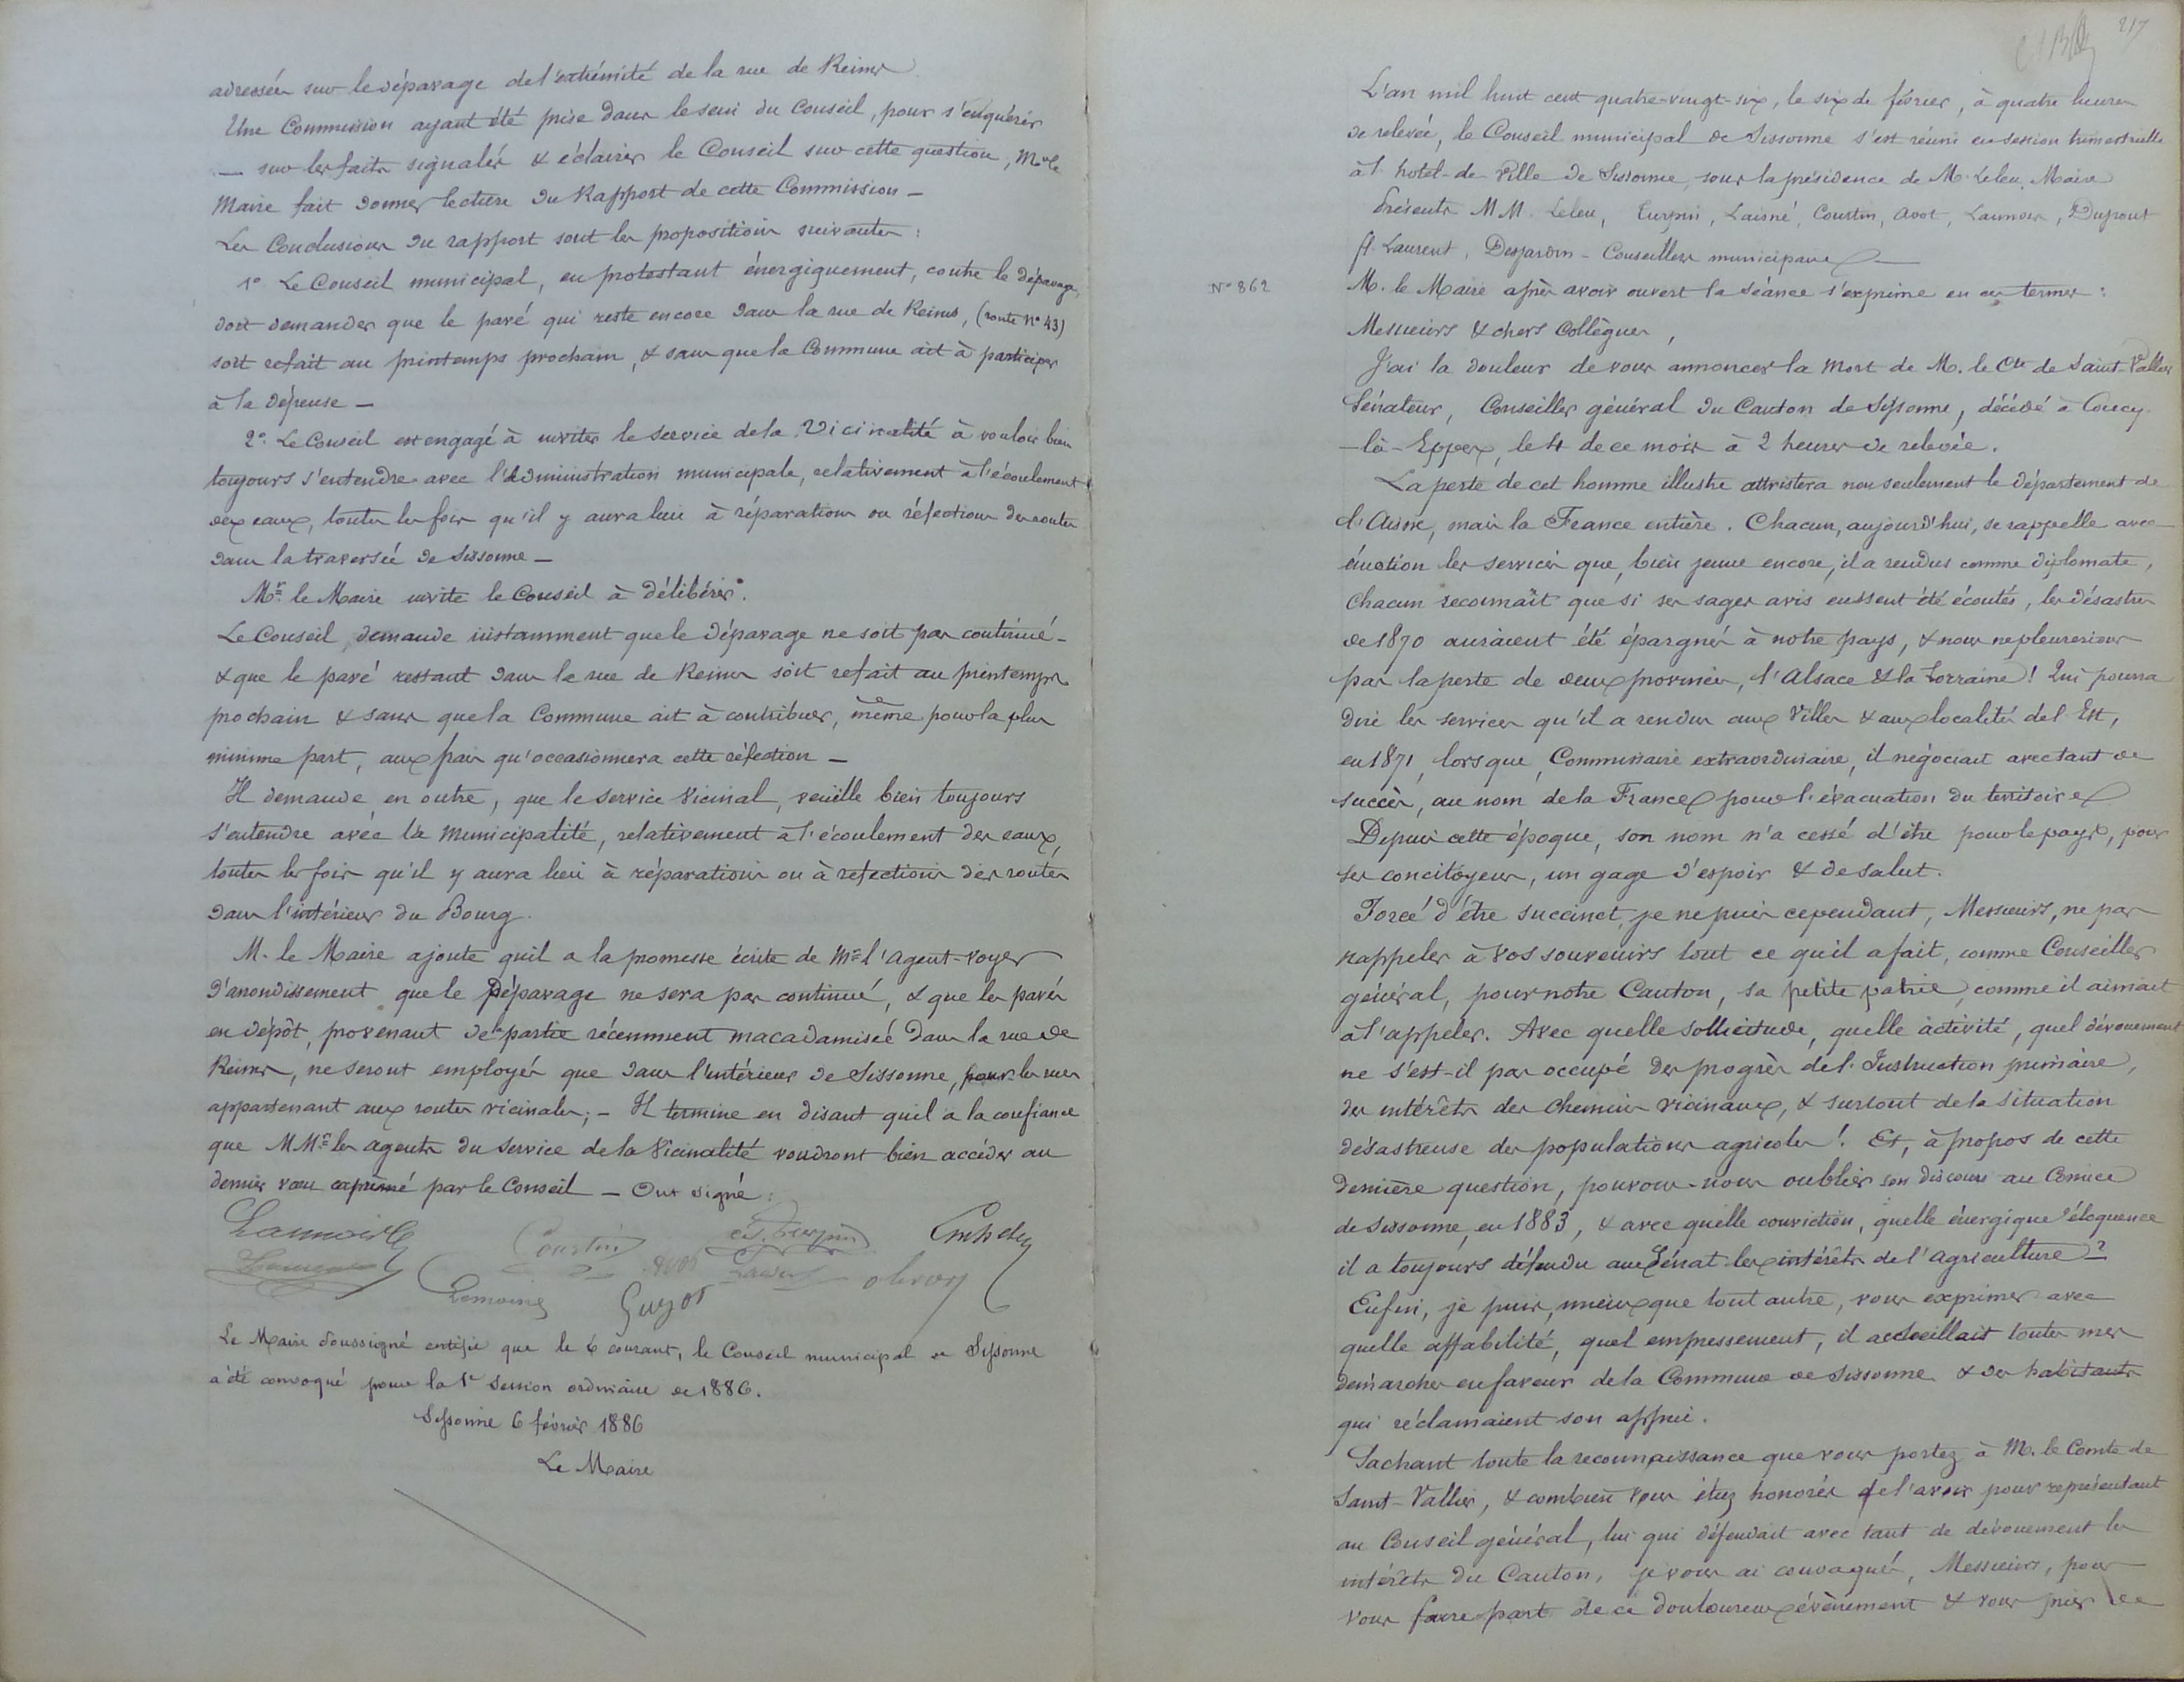 adressées sur le dépavage de l'extrémité de la rue de Reims
Une Commission ayant été prise dans le sein du Conseil, pour s'enquérir
— sur les faits signalés & éclairer le Conseil sur cette question, Mr le
Maire fait donner lecture du Rapport de cette Commission —
Les Conclusions du rapport sont les propositions suivantes :
1° Le Conseil municipal, en protestant énergiquement, contre le dépavage,
doit demander que le pavé qui reste encore dans la rue de Reims, (route N° 43)
soit refait au printemps prochain, & sans que la Commune ait à participer
à la dépense —
2° Le Conseil est engagé à inviter le service de la Vicinalité à vouloir bien
toujours s'entendre avec l'administration municipale, relativement à l'écoulement
des eaux, toutes les fois qu'il y aura lieu à réparations ou réfections des routes
dans la traversée de Sissonne —
Mr le Maire invite le Conseil à délibérer.
Le Conseil, demande instamment que le dépavage ne soit pas continué —
& que le pavé restant dans la rue de Reims soit refait au printemps
prochain & sans que la Commune ait à contribuer, même pour la plus
minime part, aux frais qu'occasionnera cette réfection —
Il demande en outre, que le service vicinal, veuille bien toujours
s'entendre avec la Municipalité, relativement à l'écoulement des eaux,
toutes les fois qu'il y aura lieu à réparations ou à refections des routes
dans l'intérieur du Bourg.
M. le Maire ajoute quil a la promesse écrite de Mr l'Agent-voyer
d'arrondissement que le Dépavage ne sera pas continué, & que les pavés
en dépôt, provenant de la partie récemment macadamisée dans la rue de
Reims, ne seront employés que dans l'intérieur de Sissonne, pour les rues
appartenant aux routes vicinales ; — Il termine en disant quil a la confiance
que MMrs les agents du service de la Vicinalité voudront bien accéder au
dernier vœu exprimé par le Conseil — Ont signé :
Launois Courtin Turpin
Laurent Avot
Lemoine Guyot
Le Maire soussigné certifie que le 6 courant, le Conseil municipal de Sissonne
a été convoqué pour la 1e session ordinaire de 1886.
Sissonne 6 février 1886
Le Maire
217
L'an mil huit cent quatre-vingt-six, le six de février, à quatre heures
de relevée, le Conseil municipal de Sissonne s'est réuni en session trimestrielle
à l'hotel-de-Ville de Sissonne, sous la présidence de M. Leleu, Maire
Présents MM. Leleu, Turpin, Laisné, Courtin, Avot, Launois, Dupont
A. Laurent, Desjardin — Conseillers municipaux —
N° 862
M. le Maire après avoir ouvert la séance s'exprime en ces termes :
Messieurs & chers Collègues,
J'ai la douleur de vous annoncer la mort de M. le Cte de Saint Vallier
Sénateur, Conseiller général du Canton de Sissonne, décédé à Coucy-
-lès-Eppes, le 4 de ce mois à 2 heures de relevée.
La perte de cet homme illustre attristera non seulement le département de
l'Aisne, mais la France entière. Chacun, aujourd'hui, se rappelle avec
émotion les services que, bien jeune encore, il a rendus comme diplomate,
Chacun reconnaît que si ses sages avis eussent été écoutés, les désastres
de 1870 auraient été épargnés à notre pays, & nous ne pleurerions
pas la perte de deux provinces, l'Alsace & la Lorraine ! Qui pourra
dire les services qu'il a rendus aux Villes & aux localités de l'Est,
en 1871, lorsque, Commissaire extraordinaire, il négociait avec tant de
succès, au nom de la France pour l'évacuation du territoire
Depuis cette époque, son nom n'a cessé d'être pour le pays, pour
ses concitoyens, un gage d'espoir & de salut.
Forcé d'être succinct, je ne puis cependant, Messieurs, ne pas
rappeler à vos souvenirs tout ce qu'il a fait, comme Conseiller
général, pour notre Canton, sa petite patrie, comme il aimait
à l'appeler. Avec quelle sollicitude, quelle activité, quel dévouement
ne s'est-il pas occupé des progrès de l'Instruction primaire,
des intérêts des chemins vicinaux, & surtout de la situation
désastreuse des populations agricoles ! Et, à propos de cette
dernière question, pouvons-nous oublier son discours au Comice
de Sissonne, en 1883, & avec quelle conviction, quelle énergique éloquence
il a toujours défendu au Sénat les intérêts de l'agriculture ?
Enfin, je puis, mieux que tout autre, vous exprimer avec
quelle affabilité, quel empressement, il accueillait toutes mes
démarches en faveur de la Commune de Sissonne & des habitants
qui réclamaient son appui.
Sachant toute la reconnaissance que vous portez à M. le Comte de
Saint-Vallier, & combien vous étiez honorés de l'avoir pour représentant
au Conseil général, lui qui défendait avec tant de dévouement les
intérêts du Canton, je vous ai convoqués, Messieurs, pour
vous faire part de ce douloureux évènement & vous prier de